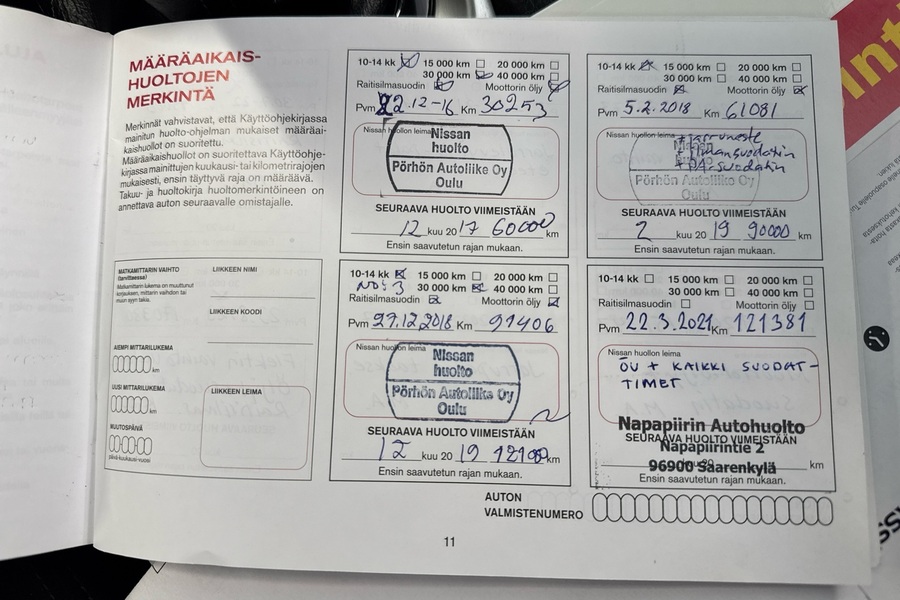 MÄÄRÄAIKAIS-
HUOLTOJEN
MERKINTÄ
Merkinnät vahvistavat, että Käyttöohjekirjassa
mainitun huolto-ohjelman mukaiset määräai-
kaishuollot on suoritettu.
Määräaikaishuollot on suoritettava Käyttöohje-
kirjassa mainittujen kuukausi- tai kilometrirajojen
mukaisesti, ensin täyttyvä raja on määräävä.
Takuu- ja huoltokirja huoltomerkintöineen on
annettava auton seuraavalle omistajalle.
MATKAMITTARIN VAIHTO
(tarvittaessa)
Matkamittarin lukema on muuttunut
korjauksen, mittarin vaihdon tai
muun syyn takia.
AIEMPI MITTARILUKEMA
km
UUSI MITTARILUKEMA
km
MUUTOSPÄIVÄ
päivä-kuukausi-vuosi
LIIKKEEN NIMI
LIIKKEEN KOODI
LIIKKEEN LEIMA
10-14 kk 15 000 km 20 000 km
30 000 km 40 000 km
Raitisilmasuodin Moottorin öljy
Pvm 22.12-16 Km 30253
Nissan huollon leima
Nissan
huolto
Pörhön Autoliike Oy
Oulu
SEURAAVA HUOLTO VIIMEISTÄÄN
12 kuu 2017 60000 km
Ensin saavutetun rajan mukaan.
10-14 kk 15 000 km 20 000 km
30 000 km 40 000 km
Raitisilmasuodin Moottorin öljy
Pvm 5.2.2018 Km 61081
Nissan huollon leima
+ Jarruneste
+ ilmansuodatin
+ PA-suodatin
Nissan
huolto
Pörhön Autoliike Oy
Oulu
SEURAAVA HUOLTO VIIMEISTÄÄN
2 kuu 2019 90000 km
Ensin saavutetun rajan mukaan.
10-14 kk 15 000 km 20 000 km
NO: 3 30 000 km 40 000 km
Raitisilmasuodin Moottorin öljy
Pvm 27.12.2018 Km 91406
Nissan huollon leima
Nissan
huolto
Pörhön Autoliike Oy
Oulu
SEURAAVA HUOLTO VIIMEISTÄÄN
12 kuu 2019 km
Ensin saavutetun rajan mukaan.
10-14 kk 15 000 km 20 000 km
30 000 km 40 000 km
Raitisilmasuodin Moottorin öljy
Pvm 22.3.2021 Km 121381
Nissan huollon leima
ÖLJY + KAIKKI SUODAT-
TIMET
Napapiirin Autohuolto
SEURAAVA HUOLTO VIIMEISTÄÄN
Napapiirintie 2
96900 Saarenkylä
kuu 20 km
Ensin saavutetun rajan mukaan.
AUTON
VALMISTENUMERO
11